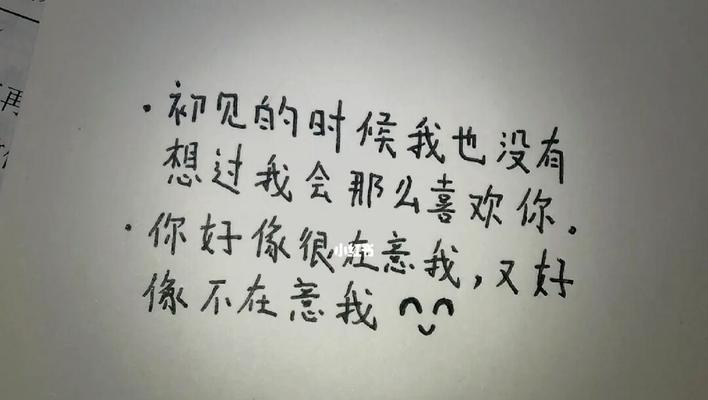 · 初见的时候我也没有
想过我会那么喜欢你。
· 你好像很在意我,又好
像不在意我
小红书